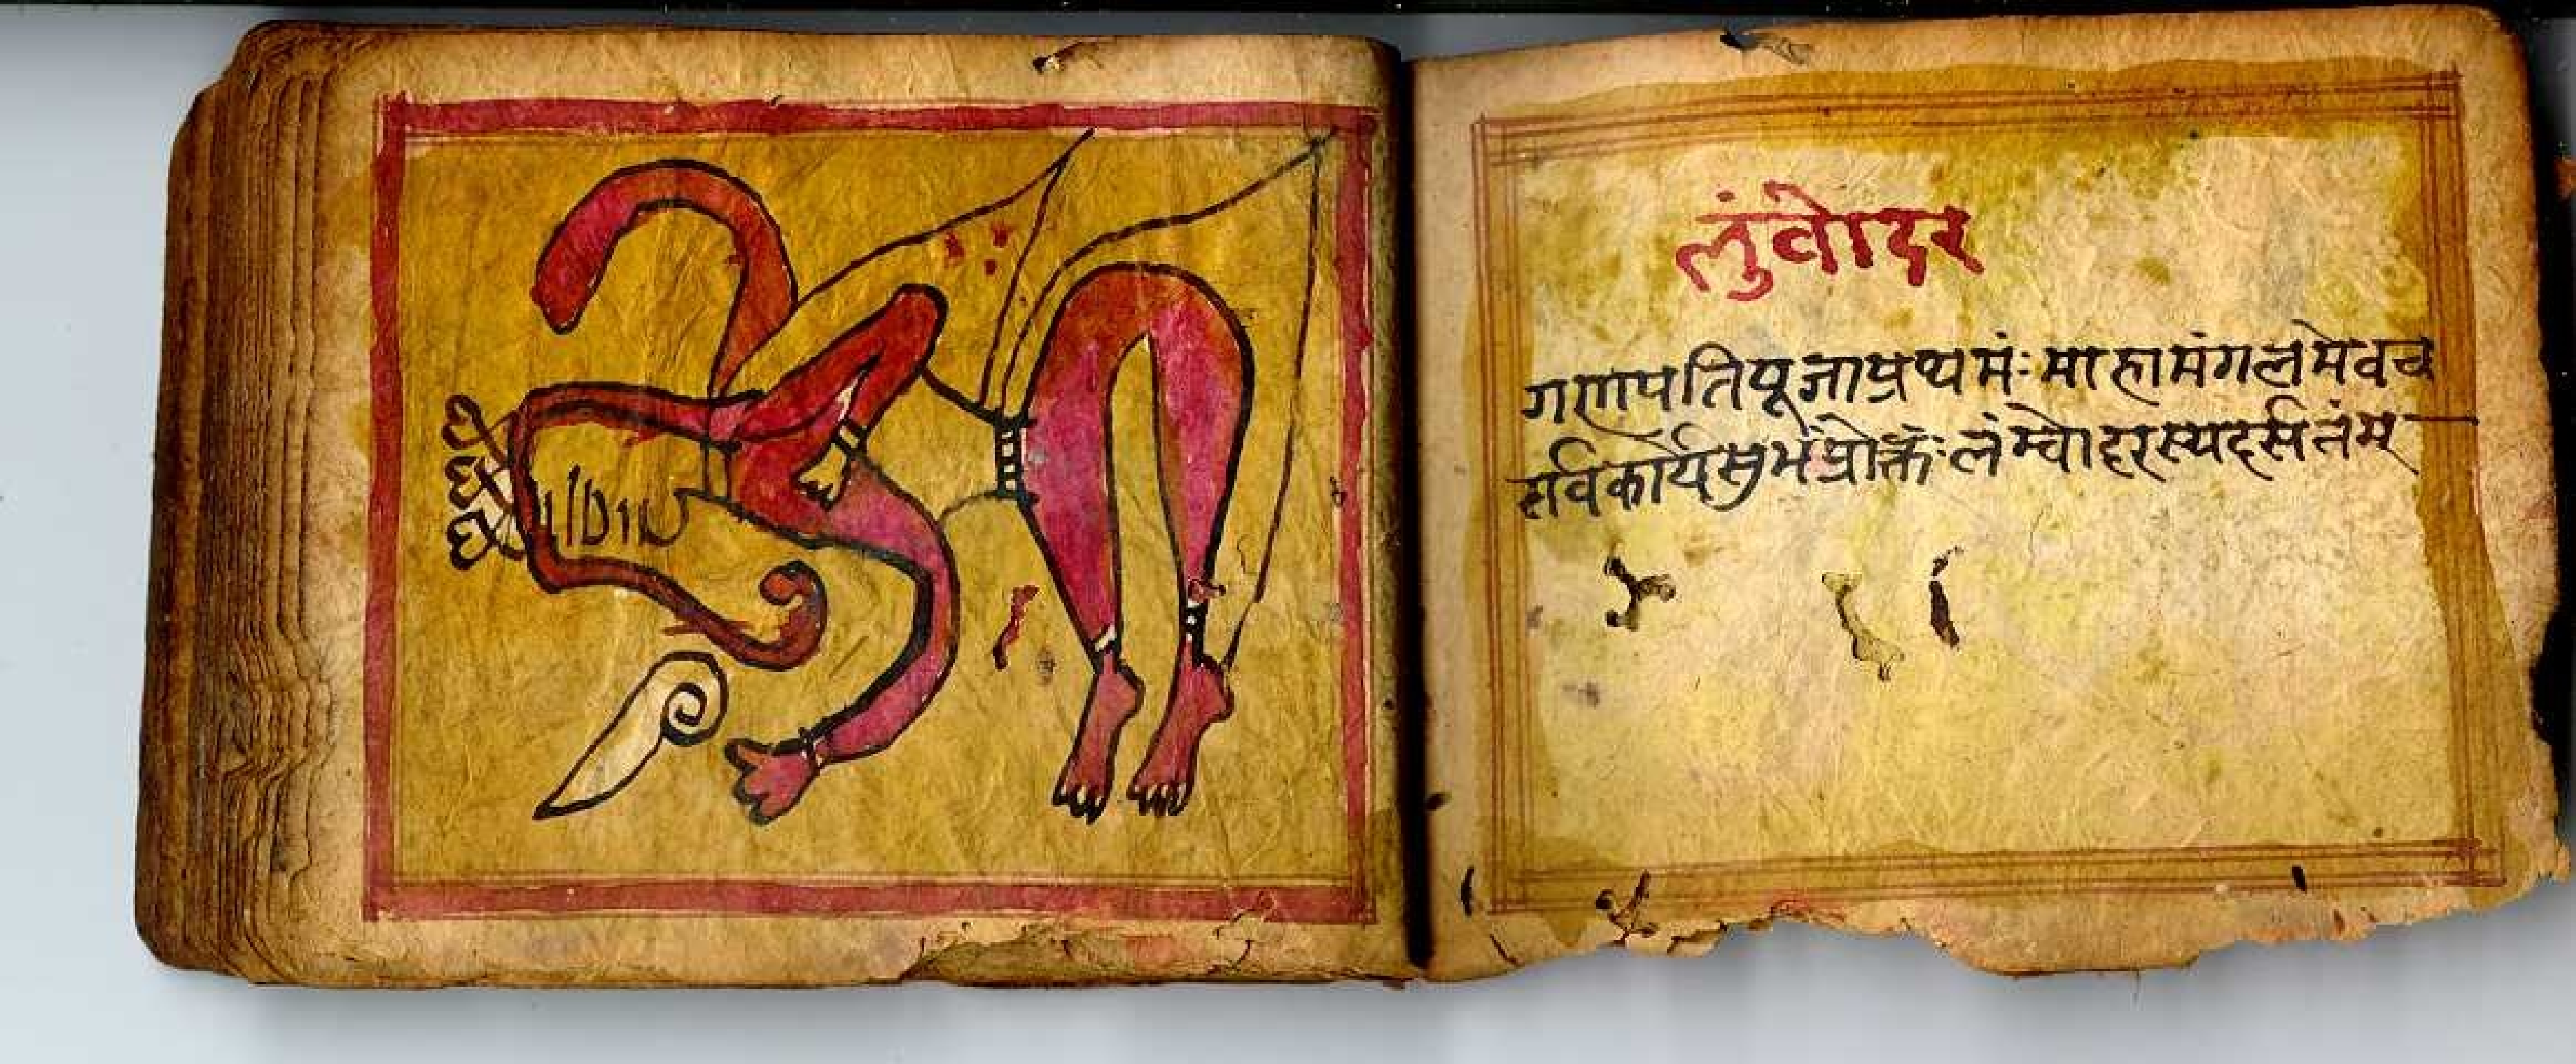 लुंवोदर
गणपतिपूजाप्रथमंः माहामंगलमेवच
सर्वकार्यसुभंप्रोक्तंः लंम्वोदरस्यदर्सनंम्